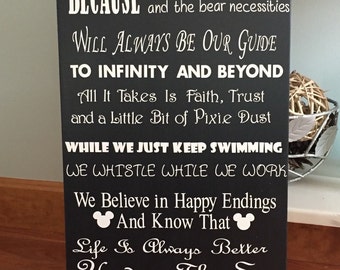 BECAUSE and the bear necessities
Will Always Be Our Guide
TO INFINITY AND BEYOND
All It Takes Is Faith, Trust
and a Little Bit of Pixie Dust
WHILE WE JUST KEEP SWIMMING
WE WHISTLE WHILE WE WORK
We Believe in Happy Endings
And Know That
Life Is Always Better